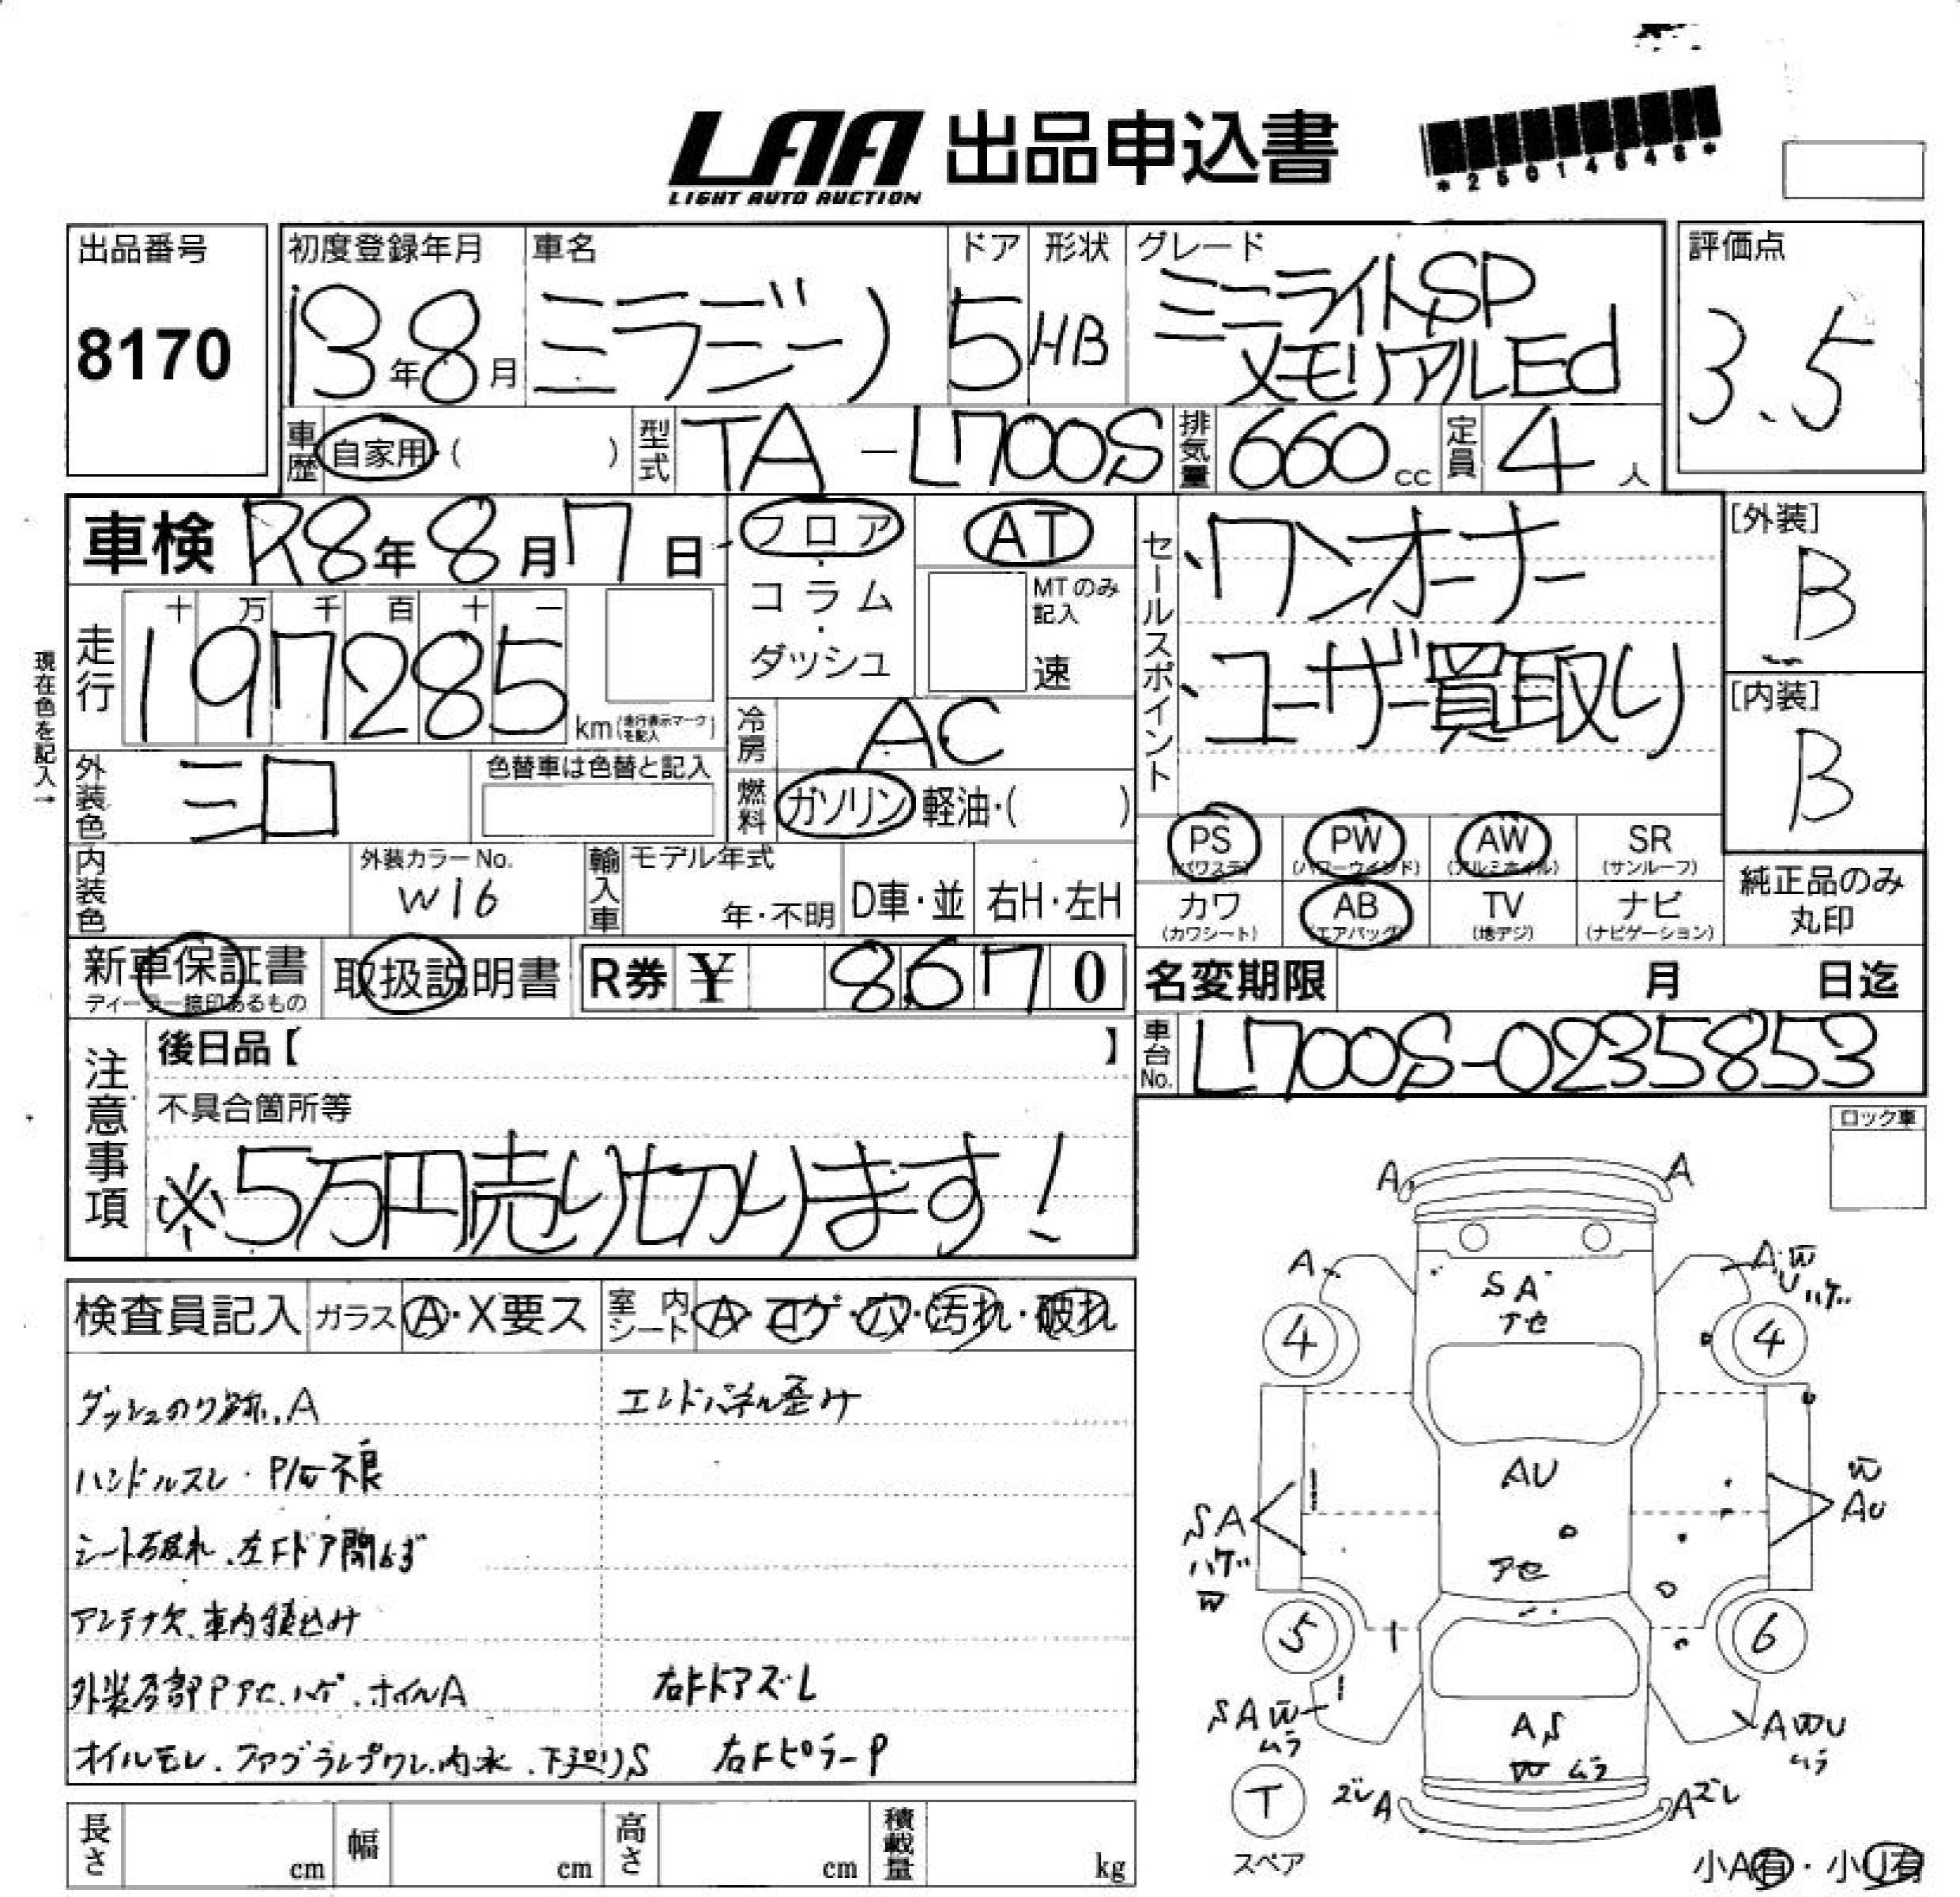 LAA 出品申込書
LIGHT AUTO AUCTION
出品番号
8170
初度登録年月
13年8月
車名
ミラジーノ
ドア
5
形状
HB
グレード
ミニライトSP
メモリアルEd
評価点
3.5
車歴 自家用・( )
型式 TA-L700S
排気量 660cc
定員 4人
車検 R8年8月7日
フロア・コラム・ダッシュ
AT
MTのみ記入
速
セールスポイント
ワンオーナー
ユーザー買取り
[外装]
B
[内装]
B
現在色を記入→
走行
十 万 千 百 十 一
197285
km(走行表示マークを記入)
冷房 AC
燃料 ガソリン 軽油・( )
外装色
色替車は色替と記入
内装色
外装カラーNo.
W16
輸入車
モデル年式
年・不明
D車・並
右H・左H
PS (パワステ)
PW (パワーウインド)
AW (アルミホイル)
SR (サンルーフ)
カワ (カワシート)
AB (エアバッグ)
TV (地デジ)
ナビ (ナビゲーション)
純正品のみ
丸印
新車保証書
取扱説明書
R券 ¥ 8,670
名変期限 月 日迄
車台No. L700S-0235853
注意事項
後日品【 】
不具合箇所等
※5万円売り切ります!
ロック車
検査員記入
ガラス A・X要ス
室内シート A・コゲ・穴・汚れ・破れ
ダッシュのり跡、A
エンドパネル歪み
ハンドルスレ・P/W不良
アンテナ欠、車内
右Fドアズレ
オイルモレ
右Fピラー P
A A
A A W U ハゲ
SA
アセ
4 4
AU
アセ
SA
ハゲ
W
W
AU
5 6
SAW
ムラ
AS
W ムラ
AWU
ムラ
T
スペア
ズレ A A ズレ
長さ cm
幅 cm
高さ cm
積載量 kg
小A有・小U有